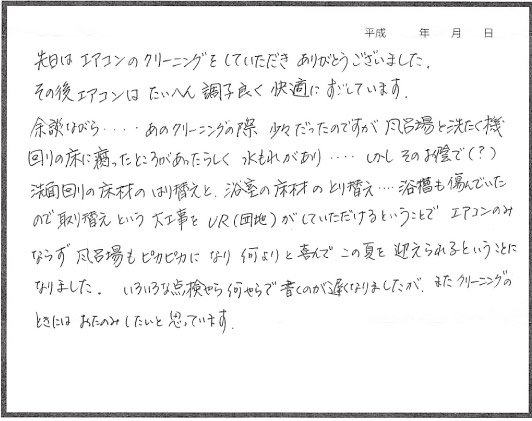 平成　年　月　日
先日は エアコンのクリーニングをしていただき ありがとうございました。
その後エアコンは たいへん 調子良く 快適に すごしています。
余談ながら・・・・あのクリーニングの際 少々だったのですが 風呂場と洗たく機
回りの床に 腐ったところがあったらしく 水もれがあり・・・・ しかし そのお陰で(？)
洗面回りの床材の はり替えと、浴室の床材の とり替え・・・・浴槽も傷んでいた
ので取り替えという 大工事を UR(団地)がしていただけるということで エアコンのみ
ならず 風呂場も ピカピカに なり 何よりと喜んで この夏を 迎えられるということに
なりました。 いろいろな点検やら何やらで 書くのが遅くなりましたが、またクリーニングの
ときには おたのみしたいと思っています。